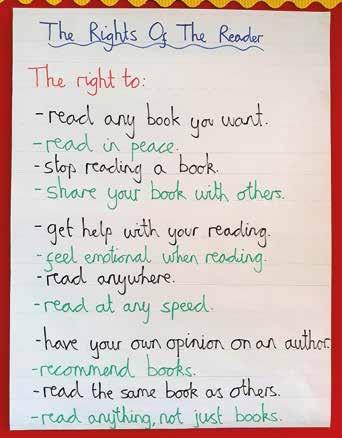 The Rights Of The Reader
The right to:
-read any book you want.
-read in peace.
-stop reading a book.
-share your book with others.
-get help with your reading.
-feel emotional when reading.
-read anywhere.
-read at any speed.
-have your own opinion on an author.
-recommend books.
-read the same book as others.
-read anything, not just books.